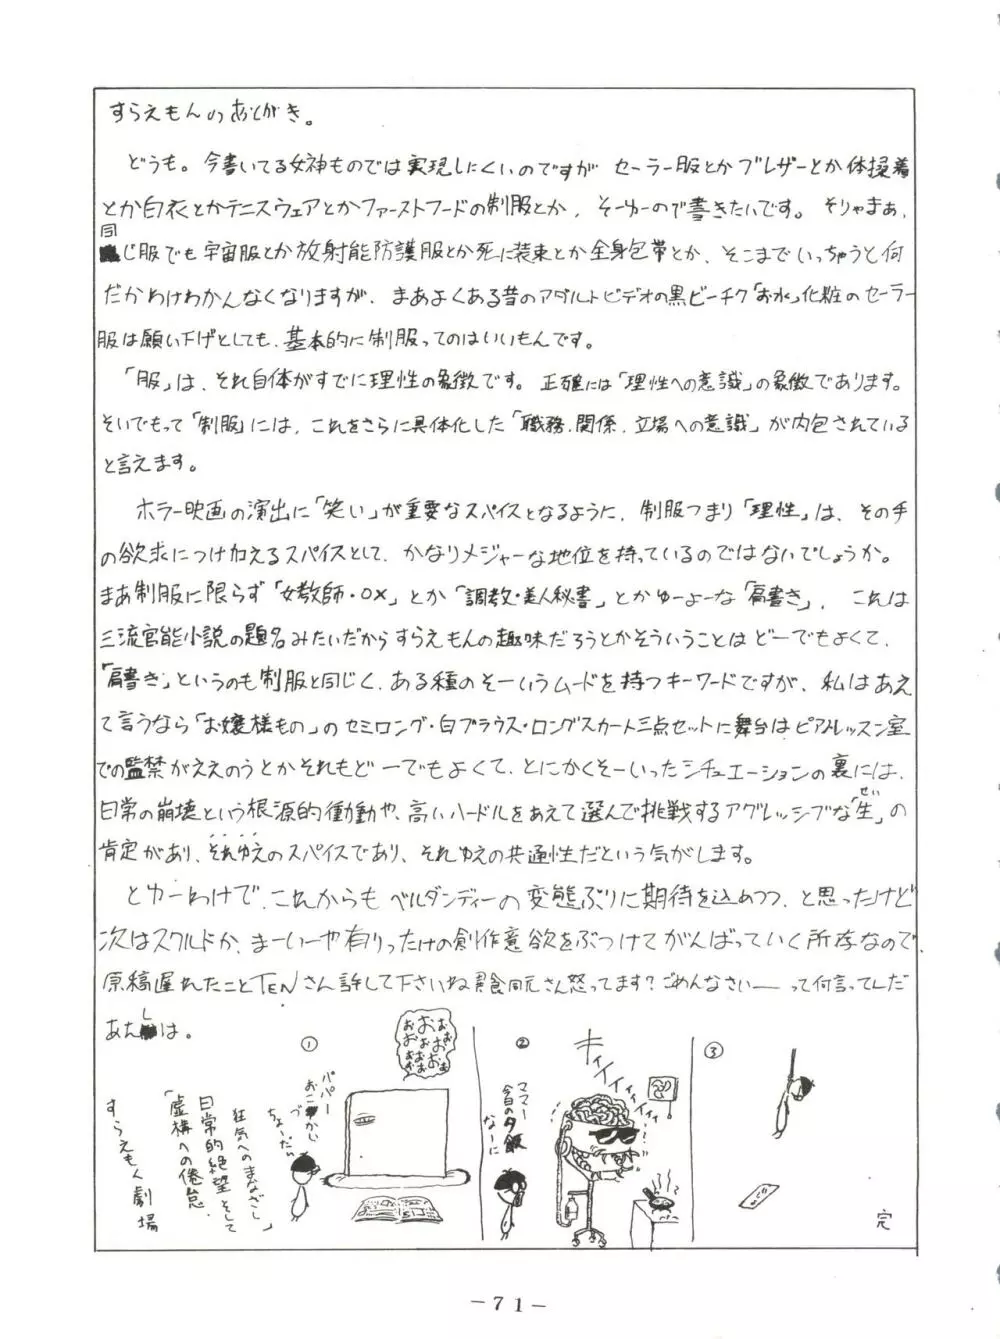 すらえもんのあとがき。
どうも。今書いてる女神ものでは実現しにくいのですが セーラー服とかブレザーとか体操着
とか白衣とかテニスウェアとかファーストフードの制服とか、そーゆーので書きたいです。そりゃまあ、
同じ服でも宇宙服とか放射能防護服とか死に装束とか全身包帯とか、そこまでいっちゃうと何
だかわけわかんなくなりますが、まあよくある昔のアダルトビデオの黒ビーチク「お水」化粧のセーラー
服は願い下げとしても、基本的に制服ってのはいいもんです。
「服」は、それ自体がすでに理性の象徴です。正確には「理性への意識」の象徴であります。
そいでもって「制服」には、これをさらに具体化した「職務、関係、立場への意識」が内包されている
と言えます。
ホラー映画の演出に「笑い」が重要なスパイスとなるように、制服つまり「理性」は、その手
の欲求につけ加えるスパイスとして、かなりメジャーな地位を持っているのではないでしょうか。
まあ制服に限らず「女教師・○×」とか「調教・美人秘書」とかゆーよーな「肩書き」、これは
三流官能小説の題名みたいだからすらえもんの趣味だろうとかそういうことはどーでもよくて、
「肩書き」というのも制服と同じく、ある種のそーいうムードを持つキーワードですが、私はあえ
て言うなら「お嬢様もの」のセミロング・白ブラウス・ロングスカート三点セットに舞台はピアノレッスン室
での監禁がええのうとかそれもどーでもよくて、とにかくそーいったシチュエーションの裏には、
日常の崩壊という根源的衝動や、高いハードルをあえて選んで挑戦するアグレッシブな「生」の
せい
肯定があり、それゆえのスパイスであり、それゆえの共通性だという気がします。
とゆーわけで、これからもベルダンディーの変態ぶりに期待を込めつつ、と思ったけど
次はスクルドか、まーいーや有りったけの創作意欲をぶつけてがんばっていく所存なので、
原稿遅れたことTENさん許して下さいね 同元さん怒ってます?ごめんなさいー って何言ってんだ
あたしは。
①
おおおおおおおおおおおおおお
パパー
おこづかい
ちょーだい
狂気へのまなざし
日常的絶望そして
「虚構への倦怠」
すらえもん劇場
②
キィイイイイイイイ
ママー
今日の夕飯
なーに
③
完
-71-